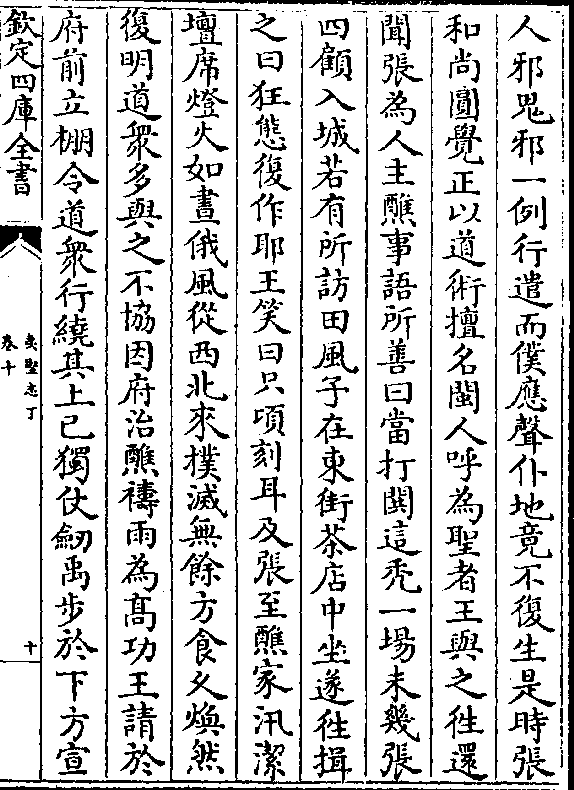 人邪鬼邪一例行遣而僕應聲仆地竟不復生是時張
和尚圓覺正以道術擅名閩人呼為聖者王與之徃還
聞張為人主醮事語所善曰當打閧這禿一場未幾張
四顧入城若有所訪田風子在東街茶店中坐遂徃揖
之曰狂態復作耶王笑曰只頃刻耳及張至醮家汛潔
壇席燈火如晝俄風從西北來撲滅無餘方食乆煥然
復明道衆多與之不協因府治醮禱雨為髙功王請於
府前立棚令道衆行繞其上已獨仗劒禹步於下方宣
欽定四庫全書
夷堅志丁
卷十
十